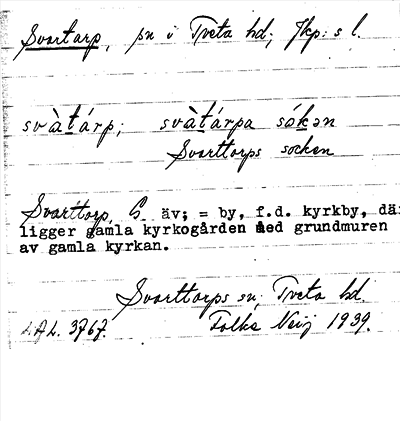 Svartarp, sn i Tveta hd; Jkp:s l.
svàtárp; svàtárpa sókən
Svarttorps socken
Svarttorp, G. äv; = by, f.d. kyrkby, där
ligger gamla kyrkogården med grundmuren
av gamla kyrkan.
Svarttorps sn; Tveta hd.
3767. Folke Neij 1939.